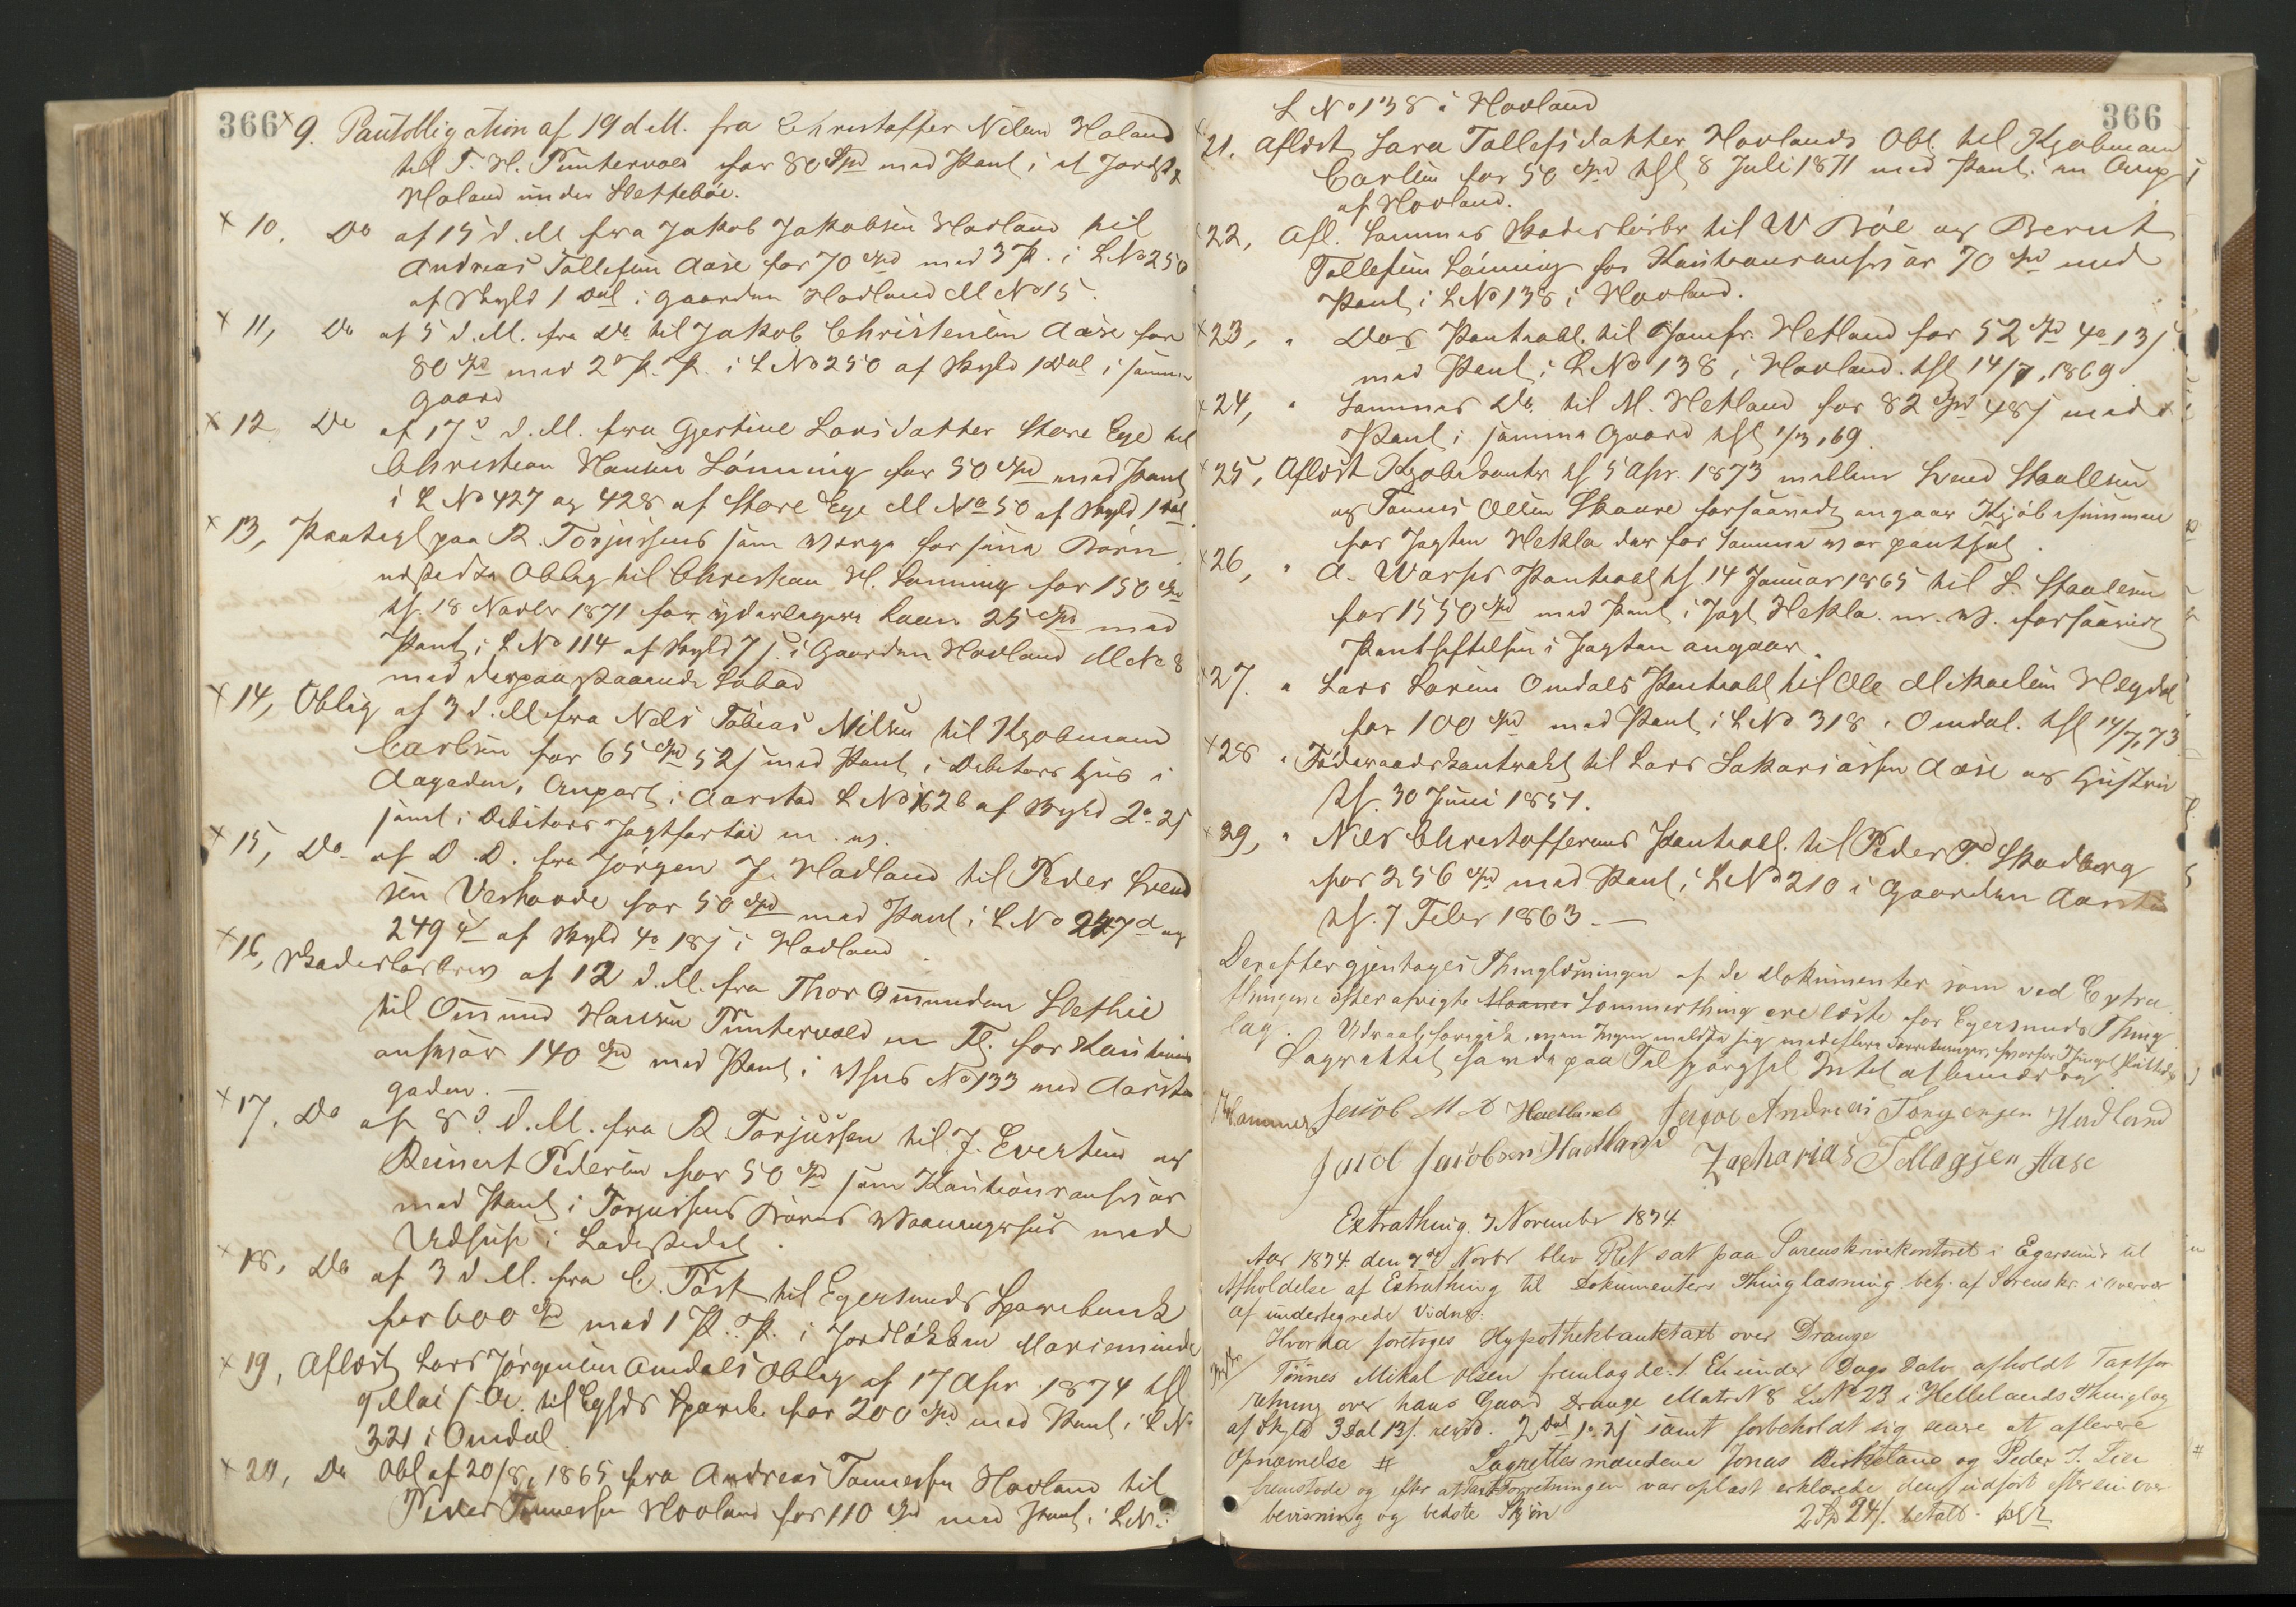 366
× 9. Pantobligation af 19 d. M. fra Christoffer Nilsen Haland
til T. H. Puntervold for 80 Spd med Pant i et Jordst
Haland under Slettebøe.
× 10, Do af 15 d. M. fra Jakob Jakobsen Hadland til
Andreas Tollefsen Aase for 70 Spd med 3 P. i L No 250
af Skyld 1 Dal i Gaarden Hadland M No 15.
× 11, Do af 5 d. M. fra Do til Jakob Christensen Aase for
80 Spd med 2d P. P. i L No 250 af Skyld 1 Dal i samme
Gaard
× 12 Do af 17d d. M. fra Gjertine Larsdatter Store Ege til
Christian Hansen Lönning for 50 Spd med Pant
i L No 427 og 428 af Store Ege M No 50 af Skyld 1 Dal
× 13, Paategl paa R. Torjussens som Værge for sine Børn
udstedte Oblig til Christian H. Lönning for 150 Spd
tgl. 18 Novbr 1871 for yderligere Laan 25 Spd med
Pant i L No 114 af Skyld 7 s. i Gaarden Hadland M No 8
med derpaa staaende Søbod
× 14, Oblig af 3 d. M. fra Nels Tobias Nilsen til Kjøbmand
Carlsen for 65 Spd 52 s med Pant i Debitors Hus i
Aagaden, Anpart i Aarstad L No 162 b af Skyld 2 o 2 s
samt i Debitors Jagtfartøi m. v.
× 15, Do af D. D. fra Jørgen J. Hadland til Peder Svend
sen Veshovde for 50 Spd med Pant i L No 247 d og
249 af Skyld 4 o 18 s i Hadland
× 16, Skadesløsbrev af 12 d. M. fra Thor Omundsen Slethei
til Omund Hansen Puntervold m Fl. for Kautions
ansvar 140 Spd med Pant i Hus No 133 ved Aarstad
gaden. —
× 17. Do af 8d. d. M. fra R Torjussen til J. Evertsen og
Reinert Pedersen for 50 Spd som Kautionsansvar
med Pant i Torjussens Børns Vaaningshus med
Udhuse i Ladestedet.
× 18, Do af 3 d M. fra C. Tørk til Egersunds Sparebank
for 600 Spd med 1 P. P. i Jordløkken Marieminde
× 19, Aflæst Lars Jørgensen Omdals Oblig af 17 Apr. 1874 tgl
9 Mai s. A. til Eghds Spareb. for 200 Spd med Pant i L No
321 i Omdal
× 20, Do Obl af 20/8, 1865 fra Andreas Tønnessen Hovland til
Peder Tønnessen Hovland for 110 Spd med Pant i L No
366
L No 138 i Hovland
21. Aflæst Sara Tollefsdatter Hovlands Obl. til Kjøbmand
Carlsen for 50 Spd tgl 8 Juli 1871 med Pant i en Anp
af Hovland.
22, Afl. Sammes Skadesløsbr til W Bøe og Bernt
Tollefsen Lönning for Kautionsansvar 70 Spd med
Pant i L No 138 i Hovland.
× 23, " Dos Panteobl. til Jomfr. Hetland for 52 Spd 4 o 13 s.
med Pant i L No 138 i Hovland. tgl 14/7, 1869
× 24, " Sammes Do. til M. Hetland for 82 Spd 48 s med
Pant i samme Gaard tgl 1/3, 69.
× 25, Aflæst Kjøbekontr tgl 5 Apr. 1873 mellem Svend Staalesen
og Tønnes Ollsen Skaare forsaavidt angaar Kjøbesummen
for Jagten Hekla der for samme var pantsat.
× 26, " A. Warps Panteobl tgl. 14 Januar 1865 til S. Staalesen
for 1550 Spd med Pant i Jagt Hekla m. v. forsaavidt
Pantheftelsen i Jagten angaar.
× 27. " Lars Larsen Omdals Pantobl til Ole Mikaelsen Hegdal
for 100 Spd med Pant i L No 318 i Omdal. tgl 14/7, 73
× 28 " Føderaadskontrakt til Lars Sakariassen Aase og Hustru
tgl. 30 Juni 1851.
× 29, " Nils Christoffersens Panteobl. til Peder Skadberg
for 256 Spd med Pant i L No 210 i Gaarden Aarstad
tgl. 7 Febr 1863 —
Derefter gjentages Thinglæsningen af de Dokumenter som ved Extra
thingene efter afvigte Sommerthing ere læste for Egersunds Thing
lag. Udraab foregik, men Ingen meldte sig med flere Forretninger, hvorfor Thinget sluttedes
Lagrettet havde paa Tilspørgsel Intet at bemærke.
Hammer Jacob M A Hadland Jacob Andreas Torgersen Hadland
Jacob Jacobsen Hadland Zacharias Tollagsen Aase
Extrathing. 7 November 1874
Aar 1874 den 7de Novbr blev Ret sat paa Sorenskriverkontoret i Egersund til
Afholdelse af Extrathing til Dokumenters Thinglæsning betj. af Sorenskr. i Overvær
af undertegnede Vidner.
Hvorda foretoges Hypothekbanktaxt over Drange
Tönnes Mikal Olsen fremlagde: 1 En under Dags Dato afholdt Taxtfor
retning over hans Gaard Drange MatrN 8 LNo 23 i Hellelands Thinglag
af Skyld 3 Dal 13 s. revid. 2 Dal 1 o 2 s samt forbeholdt sig senere at aflevere
Opnævnelse # Lagrettesmændene Jonas Birkeland og Peder I. Lien
fremstode og efter at TaxtForretningen var oplæst erklærede den udført efter sin over
bevisning og bedste Skjøn 2 Sp 24 s. betalt.